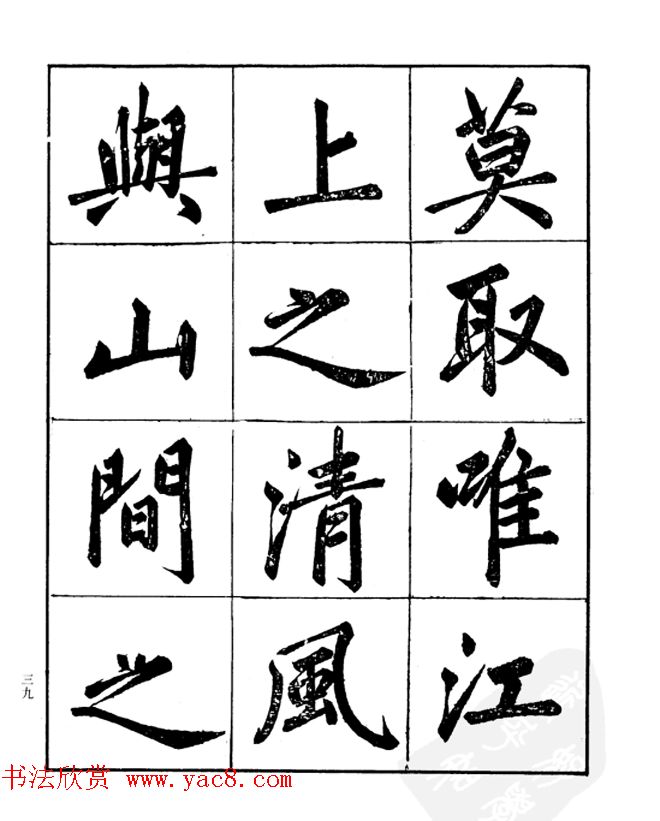 莫取唯江
上之清風
與山間之
三九
书法欣赏 www.yac8.com